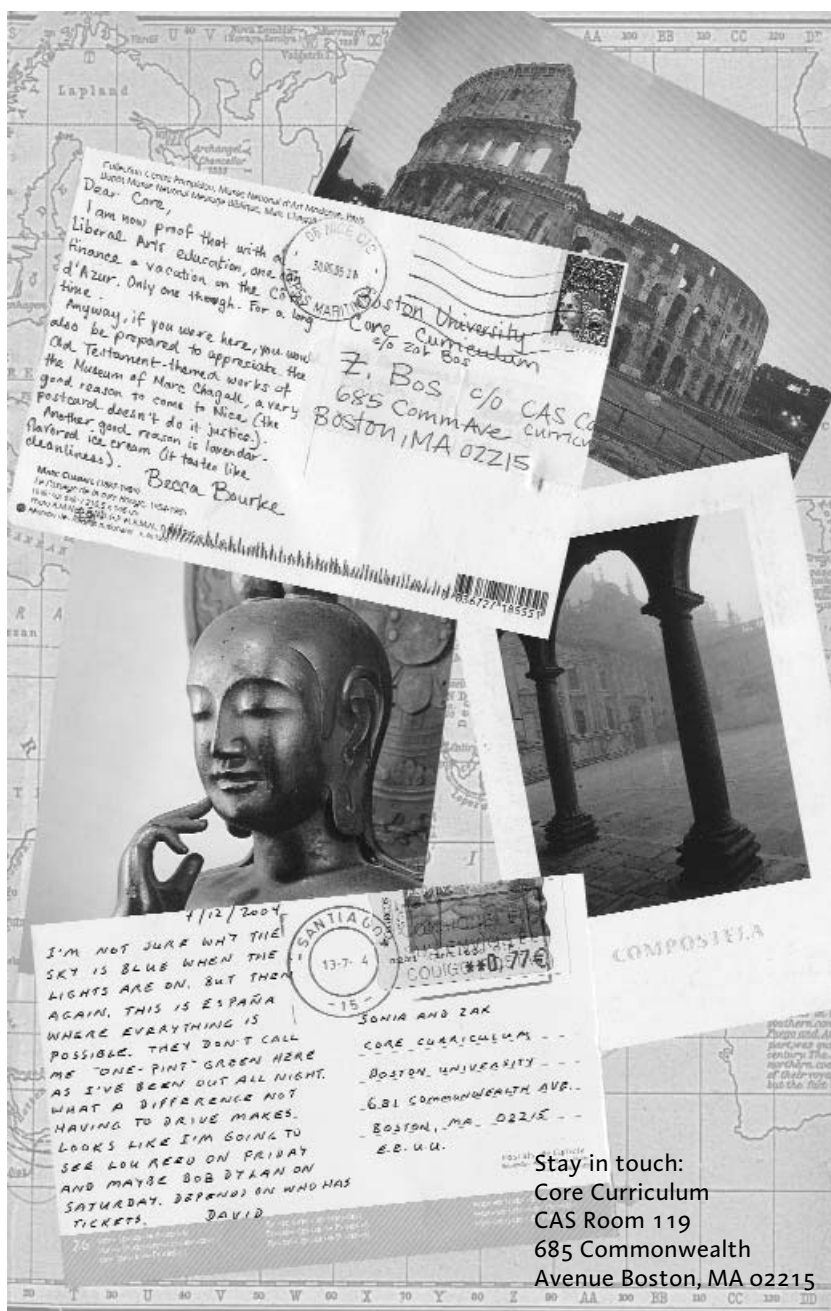 U V
AA BB CC DD
Lapland
Archangel
Chancellor
Dear Core,
I am now proof that with a
Liberal Arts education, one can
finance a vacation on the Côte
d'Azur. Only one though. For a long
time.
Anyway, if you were here, you would
also be prepared to appreciate the
Old Testament-themed works of
the Museum of Marc Chagall, a very
good reason to come to Nice (the
postcard doesn't do it justice).
Another good reason is lavendar-
flavored ice cream (it tastes like
cleanliness).
Becca Bourke
06 NICE CIC
MARITIM
Boston University
Core Curriculum
c/o Zak Bos
Z. Bos c/o CAS Co
685 Comm Ave Curricu
Boston, MA 02215
COMPOSTELA
7/12/2004
I'M NOT SURE WHY THE
SKY IS BLUE WHEN THE
LIGHTS ARE ON. BUT THEN
AGAIN, THIS IS ESPAÑA
WHERE EVERYTHING IS
POSSIBLE. THEY DON'T CALL
ME "ONE-PINT" GREEN HERE
AS I'VE BEEN OUT ALL NIGHT.
WHAT A DIFFERENCE NOT
HAVING TO DRIVE MAKES.
LOOKS LIKE I'M GOING TO
SEE LOU REED ON FRIDAY
AND MAYBE BOB DYLAN ON
SATURDAY. DEPENDS ON WHO HAS
TICKETS. DAVID
SANTIAGO
13-7- 4
-15-
CODIGO
**0,77€
SONIA AND ZAK
CORE CURRICULUM
BOSTON UNIVERSITY
681 COMMONWEALTH AVE.
BOSTON, MA 02215
E.E.U.U.
76
Stay in touch:
Core Curriculum
CAS Room 119
685 Commonwealth
Avenue Boston, MA 02215
T U V W X Y Z AA BB CC DD